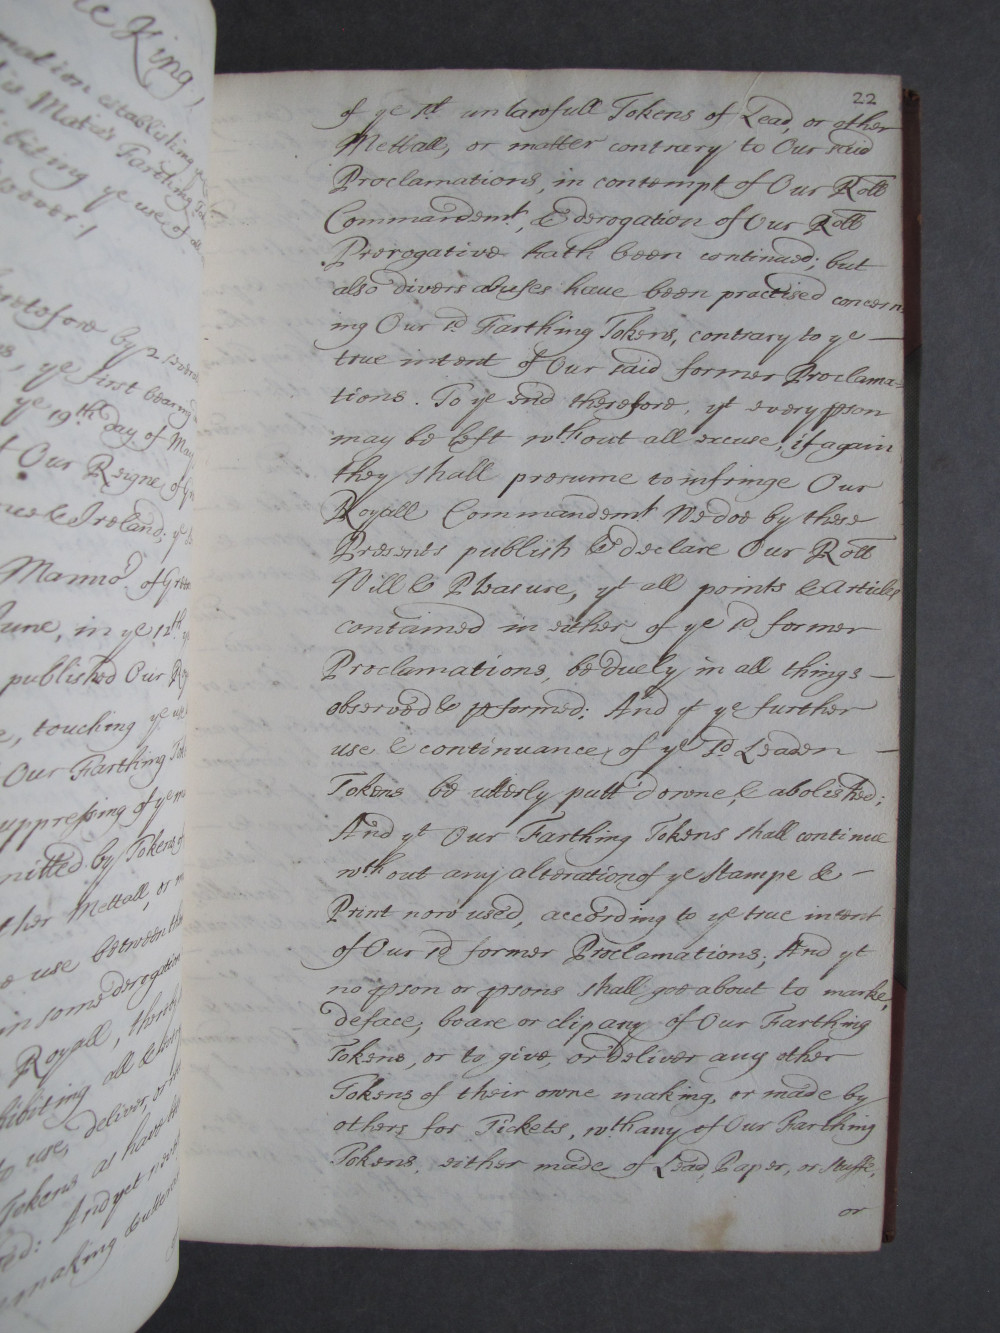 e King /
mation establishing
his Maties Farthing
biting ye use of all
soever /
heretofore by 2 severall
ye first bearing
ye 19th day of May
Our Reigne of
& Ireland; ye
Mannor of Green
June, in ye 12th
published Our Roy
touching ye use
Our Farthing Tok
suppressing of ye
mitted by Tokens of
ther Mettall, or m
use between
in some derogation
Royall, thereby
hibiting all &
to use, deliver, or
Tokens as have
ed: And yet
making & uttera
22
of ye sd. unlawfull Tokens of Lead, or other
Mettall, or matter contrary to Our said
Proclamations, in contempt of Our Roll
Commandemt., & derogation of Our Roll
Prerogative hath been continued; but
also divers abuses have been practised concern
ing Our sd Farthing Tokens, contrary to ye —
true intent of Our said former Proclama=
tions. To ye end therefore, yt every pson
may be left wthout all excuse, if again
they shall presume to infringe Our
Royall Commandemt. We doe by these
Presents publish & declare Our Roll
Will & Pleasure, yt all points & Articles
contained in either of ye sd former
Proclamations, be duely in all things —
observed & pformed; And yt ye further
use & continuance of ye sd Leaden —
Tokens be utterly putt downe, & abolished;
And yt Our Farthing Tokens shall continue
wthout any alteration of ye Stampe & —
Print now used, according to ye true intent
of Our sd former Proclamations; And yt
no pson or psons shall goe about to marke,
deface, boare or clip any of Our Farthing
Tokens, or to give, or deliver any other
Tokens of their owne making, or made by
others for Tickets, wth any of Our Farthing
Tokens, either made of Lead, Paper, or Stuffe,
or